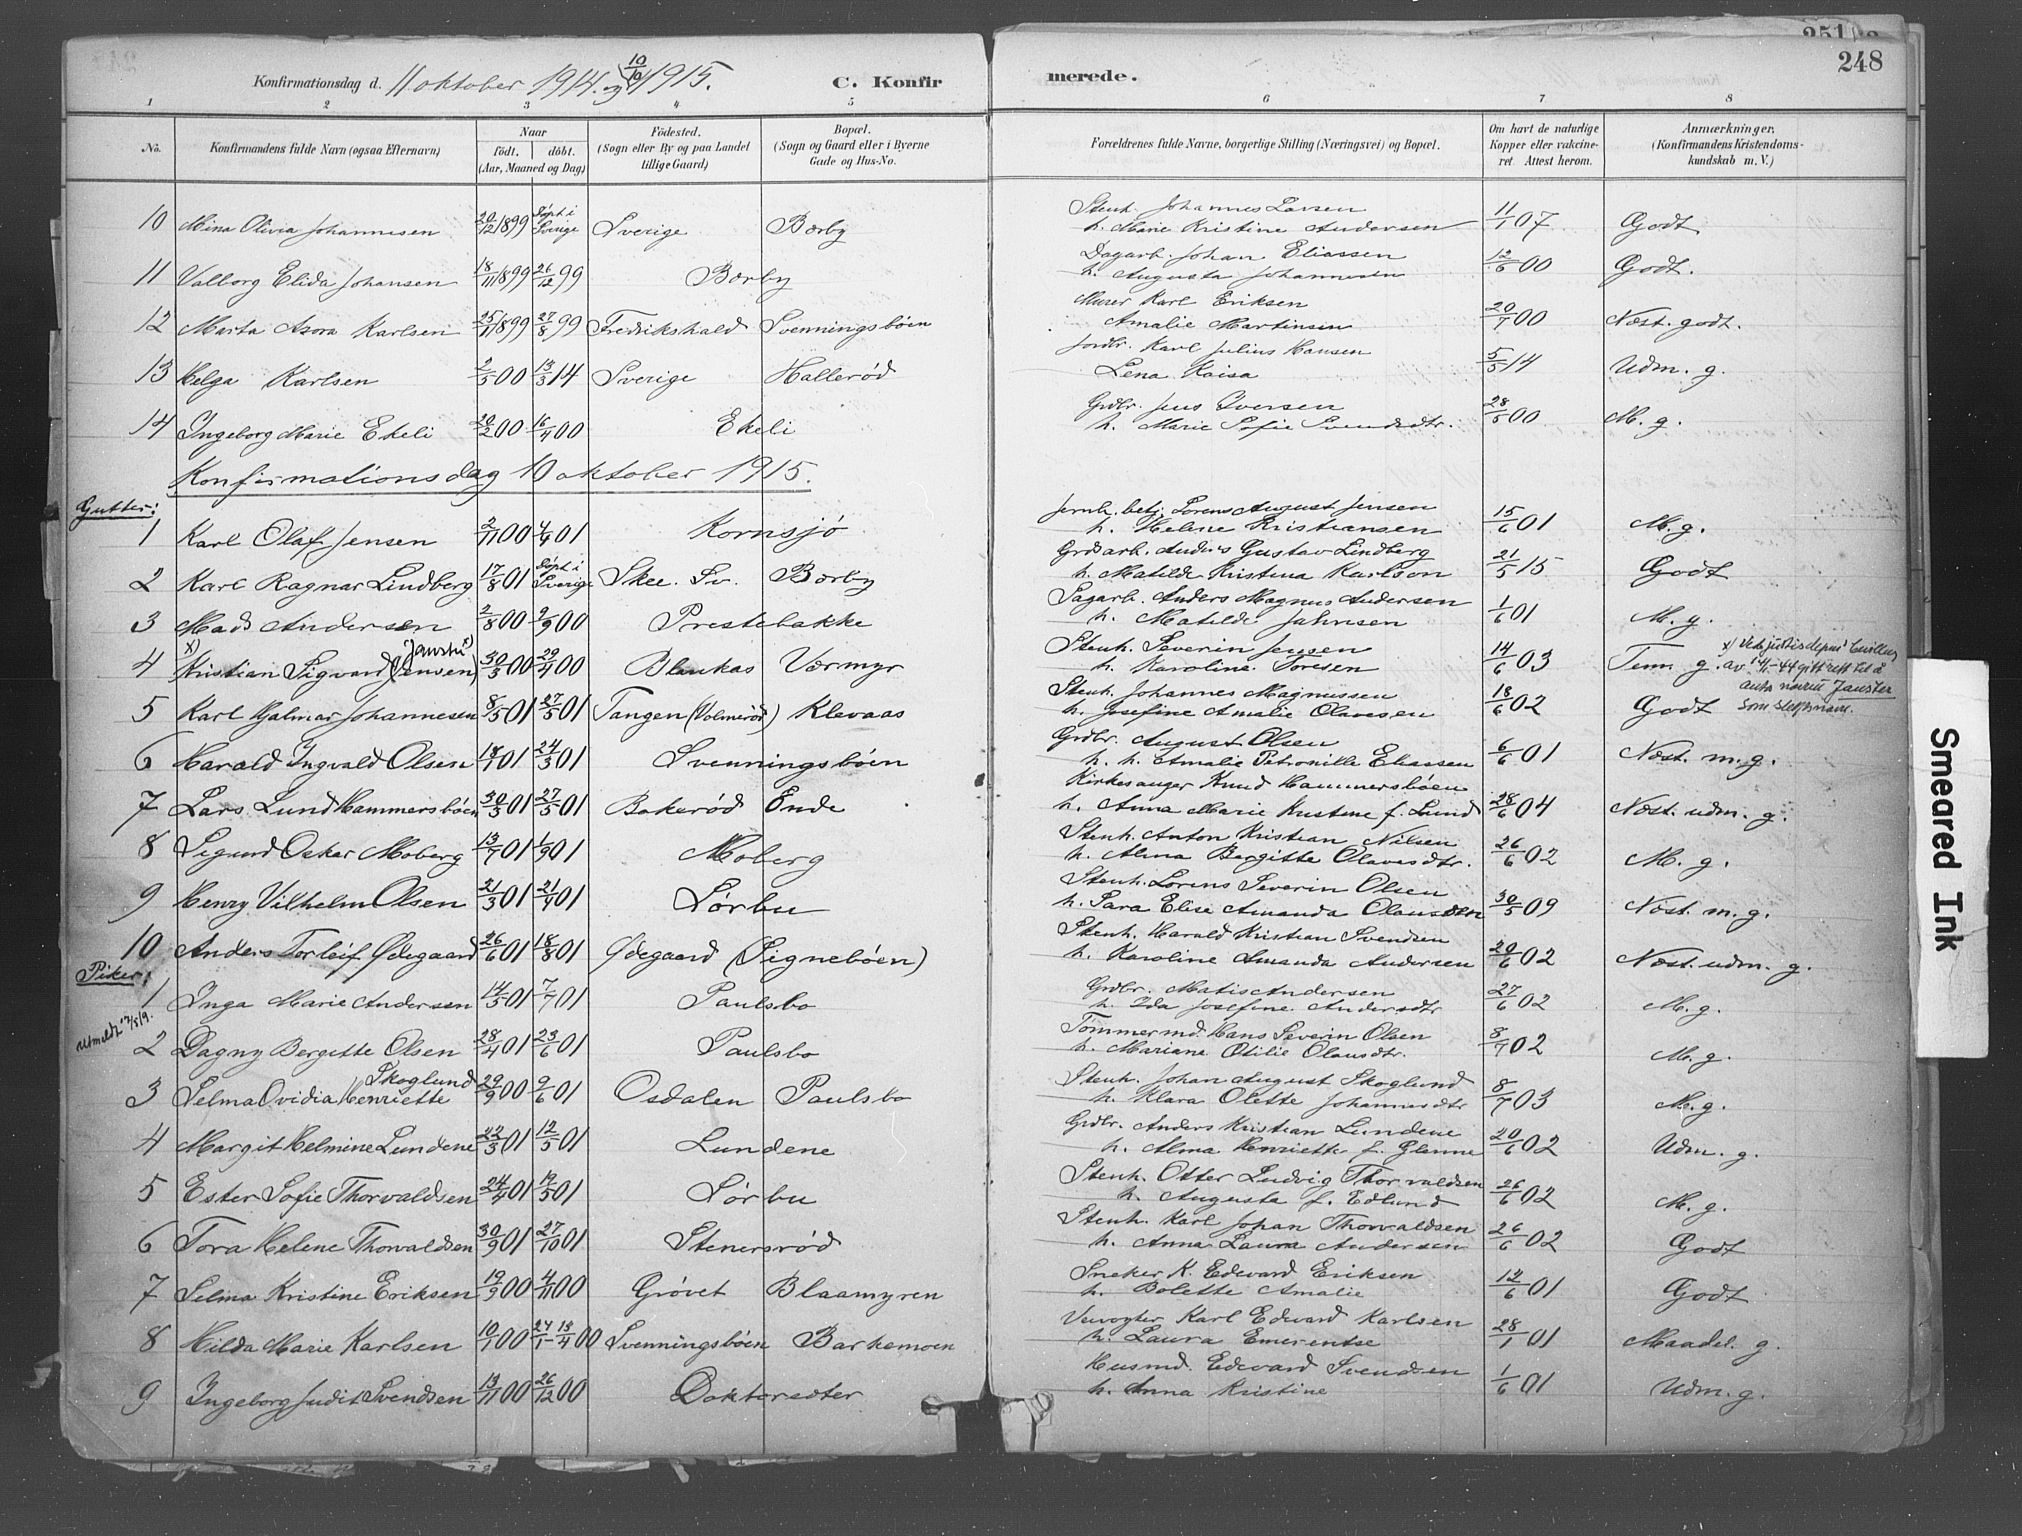 251
248
Konfirmationsdag d. 11 oktober 1914. og 10/10 1915.
C. Konfirmerede.
1 2 3 4 5 6 7 8
No.
Konfirmandens fulde Navn (ogsaa Efternavn)
Naar
født. døbt.
(Aar, Maaned og Dag)
Födested.
(Sogn eller By og paa Landet
tillige Gaard)
Bopæl.
(Sogn og Gaard eller i Byerne
Gade og Hus-No.
Forældrenes fulde Navne, borgerlige Stilling (Næringsvei) og Bopæl.
Om havt de naturlige
Kopper eller vakcine-
ret Attest herom.
Anmærkninger.
(Konfirmandens Kristendoms-
kundskab m. V.)
10 Mina Olivia Johannesen 20/12 1899 Døpt i Sverige Sverige Bærby Stenh. Johannes Larsen h. Marie Kristine Andersen 11/1 07 Godt
11 Valborg Elida Johansen 18/11 1899 26/12 99 Bærby Dagarb. Johan Eliassen h. Augusta Johannesen 12/6 00 Godt.
12 Marta Azora Karlsen 1899 27/8 99 Fredrikshald Svenningsbøen Murer Karl Eriksen Amalie Martinsen 20/7 00 Næst. godt.
13 Helga Karlsen 2/5 00 13/3 14 Sverige Hallerød Jordbr. Karl Julius Hansen Lena Kaisa 5/5 14 Udm. g.
14 Ingeborg Marie Ekeli 20/2 00 16/4 00 Ekeli Grdbr. Jens Iversen h. Marie Sofie Svendsdtr. 28/5 00 M. g.
Konfirmationsdag 10 oktober 1915.
Gutter:
1 Karl Olaf Jensen 2/11 00 4/9 01 Kornsjø Jernb. betj. Lorens August Jensen h. Helene Kristiansen 15/6 01 M. g.
2 Karl Ragnar Lindberg 17/8 01 Døpt i Sverige Skee. Sv. Bærby Grdsarb. Anders Gustav Lindberg h. Matilde Kristina Karlson 21/5 15 Godt
3 Mads Andersen 2/8 00 2/9 00 Prestebakke Sagarb. Anders Magnus Andersen h. Matilde Jahnsen 1/6 01 M. g.
4 x) Kristian Sigvard (Jensen) x) 30/3 00 29/4 00 Blaukas Værmyr Stenh. Severin Jensen h. Karoline Toresen 14/6 03 Tem. g. x) Ved justisdepts bevilling av - 44 gitt rett til å anta navnet Janster som slektsnavn.
5 Karl Hjalmar Johannesen 8/5 01 27/5 01 Tangen (Volmerød) Klevaas Stenh. Johannes Magnussen h. Josefine Amalie Olavesen 18/6 02 Godt
6 Harald Ingvald Olsen 18/1 01 24/3 01 Svenningsbøen Grdbr. August Olsen h. h. Amalie Petronille Eliassen 6/6 01 Næst. m. g.
7 Lars Lund Hammersbøen 30/3 01 27/5 01 Bakerød Ende Kirkesanger Knud Hammersbøen h. Anna Marie Kristine f. Lund 28/6 04 Næst. udm. g.
8 Sigurd Oskar Moberg 13/7 01 1/9 01 Moberg Stenh. Anton Kristian Nilsen h. Alma Bergitte Olavesdtr. 26/6 02 M. g.
9 Henry Vilhelm Olsen 21/3 01 21/4 01 Lørbu Stenh. Lorens Severin Olsen h. Sara Elise Amanda Olausdtr 30/5 09 Næst. m. g.
10 Anders Torleif Ødegaard 26/6 01 18/8 01 Ødegaard (Signebøen) Stenh. Harald Kristian Svendsen h. Karoline Amanda Andersen 20/6 02 Næst. udm. g.
Piker:
1 Inga Marie Andersen 14/5 01 7/7 01 Paulsbo Grdbr. Matis Andersen h. Ida Josefine Andersdtr 27/6 02 M. g.
Utmeldt
2 Dagny Bergitte Olsen 28/4 01 23/6 01 Paulsbo Tømmermd. Hans Severin Olsen h. Mariane Otilie Olausdtr. 8/7 02 M. g.
3 Selma Ovidia Henriette Skoglund 29/9 00 9/6 01 Osdalen Paulsbo Stenh. Johan August Skoglund h. Klara Olette Johannesdtr 8/7 03 M. g.
4 Margit Helmine Lundene 22/3 01 12/5 01 Lundene Grdbr. Anders Kristian Lundene h. Alma Henriette f. Glenne 20/6 02 Udm. g.
5 Ester Sofie Thorvaldsen 24/4 01 19/5 01 Lørbu Stenh. Otter Ludvig Thorvaldsen h. Augusta f. Edlund 26/6 02 M. g.
6 Tora Helene Thorvaldsen 30/9 01 27/10 01 Stenersrød Stenh. Karl Johan Thorvaldsen h. Anna Laura Andersen 26/6 02 Godt
7 Selma Kristine Eriksen 19/9 00 4/11 00 Grøvet Blaamyren Sneker K. Edevard Eriksen h. Bolette Amalie 12/6 01 Godt
8 Hilda Marie Karlsen 10/1 00 24/1 - 13/4 00 Svenningsbøen Barkemoen Karl Edvard Karlsen h. Laura Emerentse 28/1 01 Maadel. g.
9 Ingeborg Judit Svendsen 13/11 00 26/12 00 Doktoredter Husmd. Edevard Svendsen h. Anna Kristine 1/6 01 Udm. g.
Smeared Ink